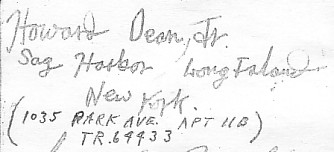 Howard Dean, Jr.
Sag Harbor Long Island
New York.
(1035 PARK AVE. APT 11B)
TR.69433